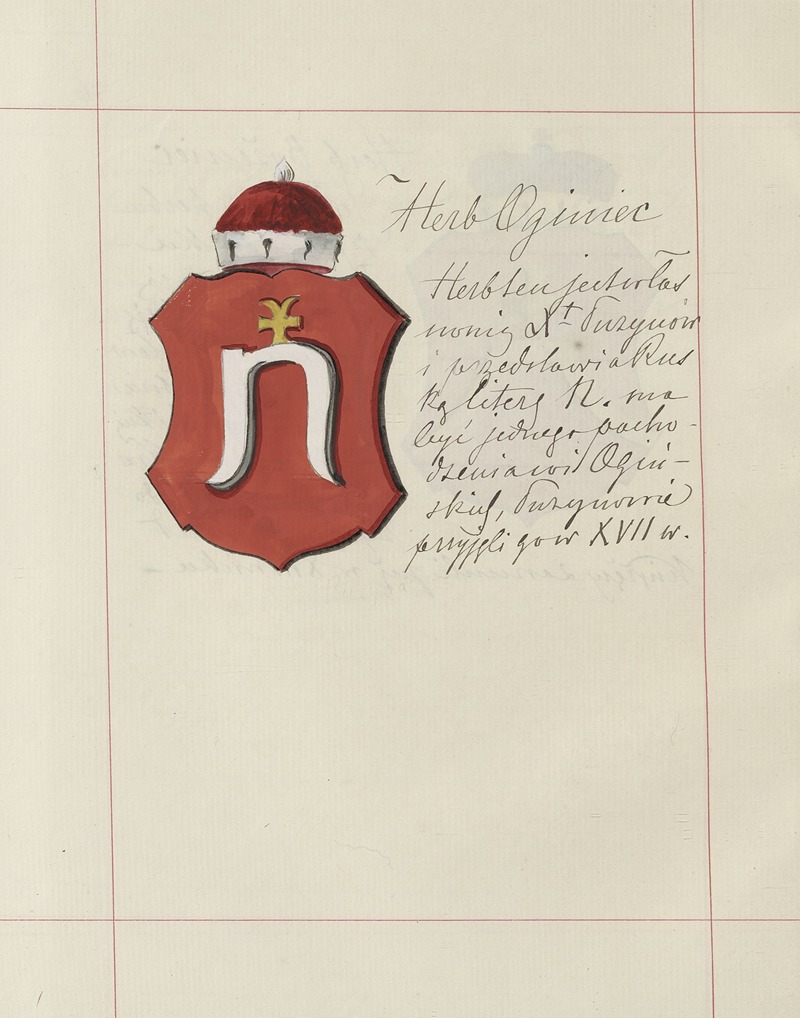 Herb Oginiec
Herb ten jest włas
nonią Xt Puzynów
i przedstawia Rus
ką literę N. ma
być jednego pocho-
dzenia wsi Ogiń-
skich, Puzynowie
przyjęli go w XVII w.